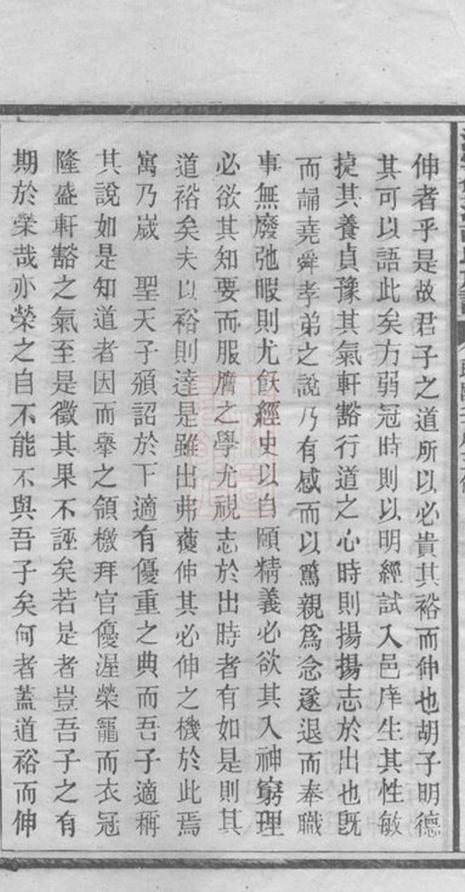 伸者乎是故君子之道所以必貴其裕而伸也胡子明德
其可以語此矣方弱冠時則以明經試入邑庠生其性敏
捷其養貞豫其氣軒豁行道之心時則揚揚志於出也旣
而誦堯舜孝弟之說乃有感而以篤親爲念遂退而奉職
事無廢弛暇則尤飫經史以自頤精義必欲其入神窮理
必欲其知要而服膺之學尤視志於出時者有如是則其
道裕矣夫以裕則達是雖出弗獲伸其必伸之機於此焉
寓乃嵗　聖天子頒詔於下適有優重之典而吾子適稱
其說如是知道者因而舉之領檄拜官優渥榮寵而衣冠
隆盛軒豁之氣至是徵其果不誣矣若是者豈吾子之有
期於榮哉亦榮之自不能不與吾子矣何者蓋道裕而伸